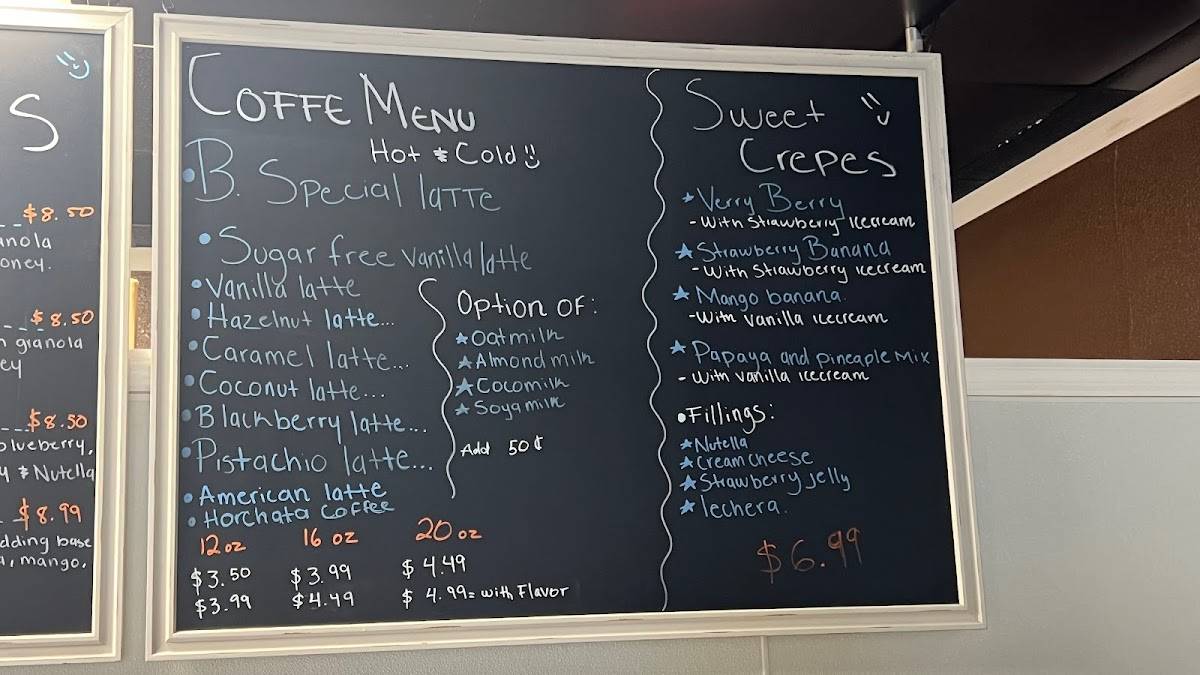 S
$8.50
$8.50
$8.50
& Nutella
$8.99
mango.
COFFE MENU
Hot & Cold
• B. Special latte
• Sugar free vanilla latte
• Vanilla latte
• Hazelnut latte...
• Caramel latte...
• Coconut latte...
• Blackberry latte...
• Pistachio latte...
• American latte
• Horchata Coffee
Option OF:
★ Oatmilk
★ Almond milk
★ Cocomilk
★ Soya milk
Add 50¢
12 oz 16 oz 20 oz
$3.50 $3.99 $4.49
$3.99 $4.49 $4.99 = with Flavor
Sweet
Crepes
★ Verry Berry
- With Strawberry Icecream
★ Strawberry Banana
- With Strawberry Icecream
★ Mango banana.
- With vanilla icecream
★ Papaya and pineaple Mix
- With vanilla icecream
• Fillings:
★ Nutella
★ Cream cheese
★ Strawberry jelly
★ lechera.
$6.99